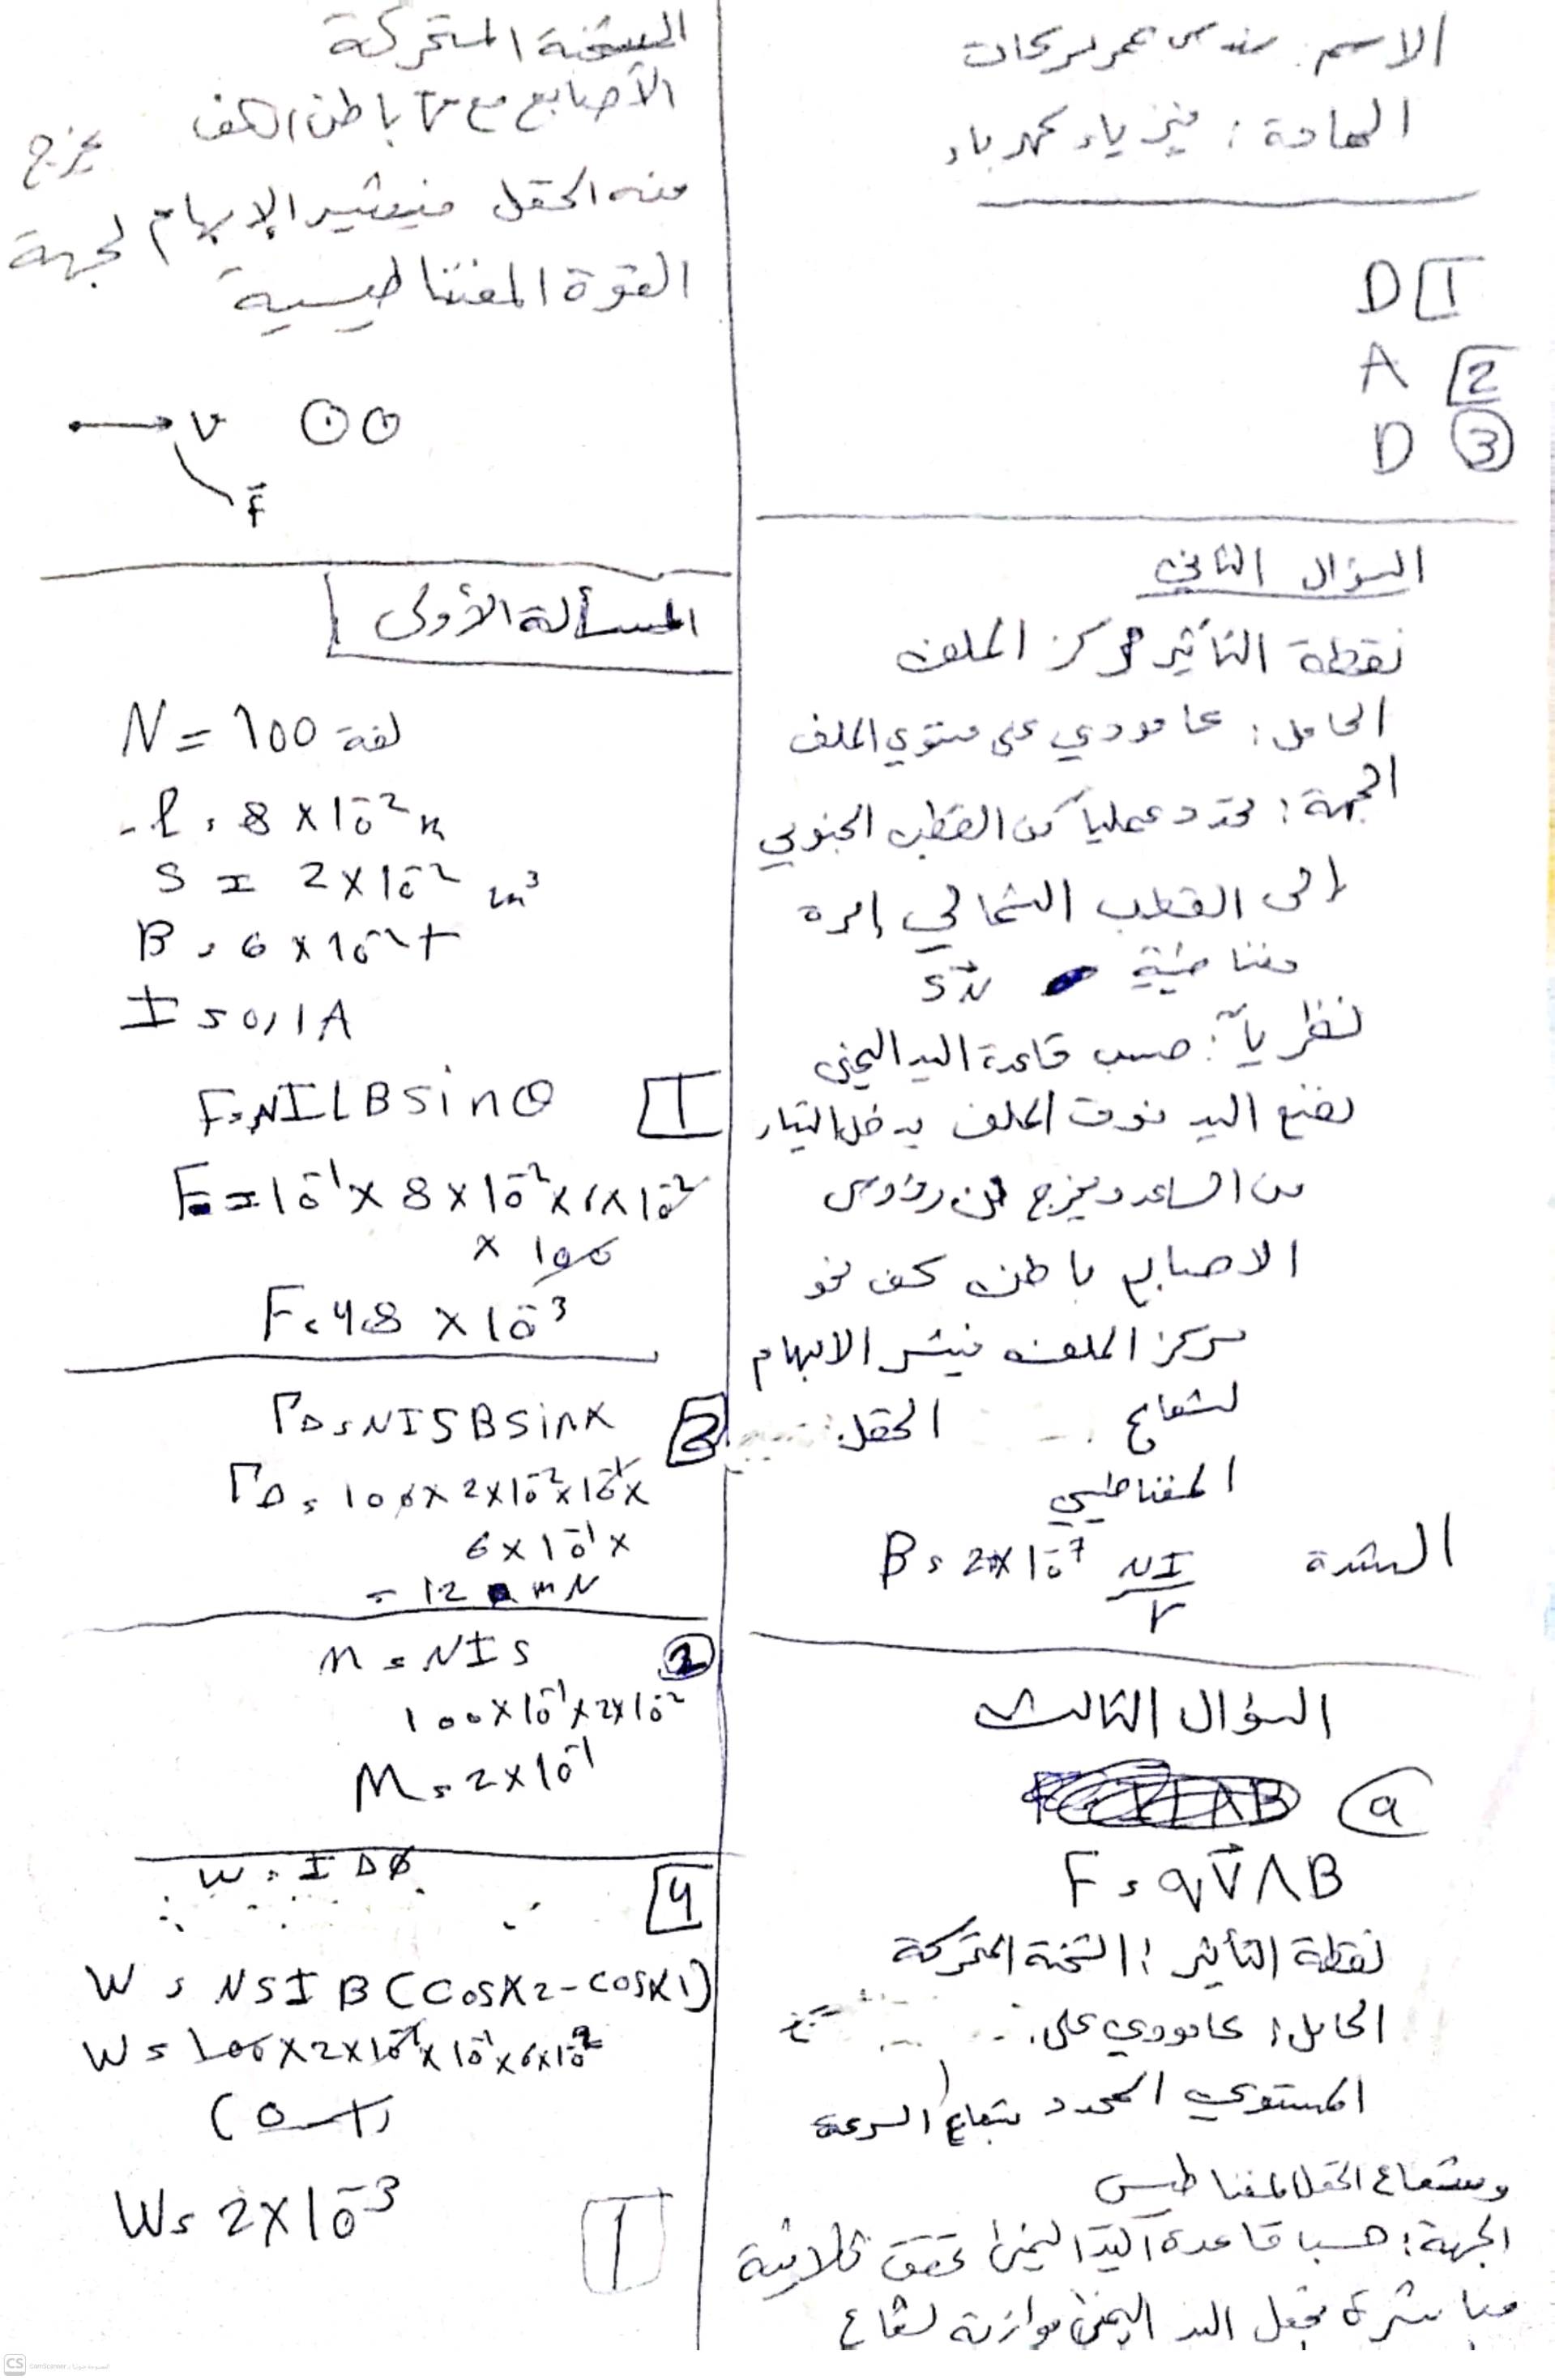 الاسم:
المادة: فيزياء كهرباء
D 1
A 2
D 3
السؤال الثاني
نقطة التأثير مركز الملف
الحامل: عامودي على مستوي الملف
الجهة: تحدد عمليا من القطب الجنوبي
إلى القطب الشمالي إبرة
مغناطيسية SN
نظرياً: حسب قاعدة اليد اليمنى
نضع اليد فوق الملف يدخل التيار
من الساعد ويخرج من رؤوس
الاصابع باطن كف نحو
مركز الملف فيشر الابهام
لشعاع الحقل
المغناطيسي
الشدة B = 2π×10⁻⁷ NI/r
السؤال الثالث
a
F = qV⃗ΛB
نقطة التأثير: الشحنة المتحركة
الحامل: عامودي على
المستوي المحدد بشعاع السرعة
وشعاع الحقل المغناطيس
الجهة: حسب قاعدة اليد اليمنى تحقق ثلاثية
مباشرة نجعل اليد اليمنى موازية لشعاع
الشحنة المتحركة
الأصابع مع باطن الكف يخرج
منه الحقل فيشير الإبهام لجهة
القوة المغناطيسية
v ⊙⊙
F⃗
المسألة الأولى
N = 100 لفة
l = 8×10⁻² m
S = 2×10⁻² m³
B = 6×10⁻² T
I = 0,1A
F = NILBsinθ 1
F = 10⁻¹×8×10⁻²×6×10⁻²
×100
F = 48×10⁻³
ΓΔ = NISBsinα 2
ΓΔ = 100×2×10⁻²×10⁻¹×
6×10⁻¹×
= 12 mN
M = NIS 3
100×10⁻¹×2×10⁻²
M = 2×10⁻¹
W = IΔΦ 4
W = NSIB(cosα2-cosα1)
W = 100×2×10⁻²×10⁻¹×6×10⁻²
W = 2×10⁻³
1
CS CamScanner